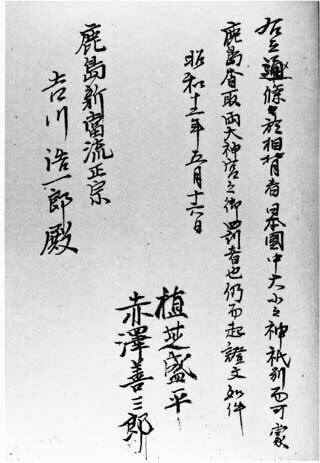 右之通條々於相背者日本國中大小之神祇別而可蒙
鹿島香取両大神宮之御罰者也仍而起證文如件
昭和十二年五月十六日
植芝盛平
赤澤善三郎
鹿島新當流正宗
吉川浩一郎殿